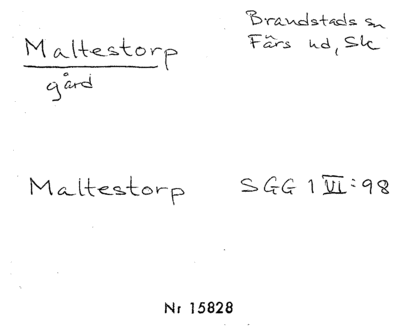 Maltestorp
gård
Brandstads sn
Färs hd, Sk
Maltestorp SGG 1 VI:98
Nr 15828